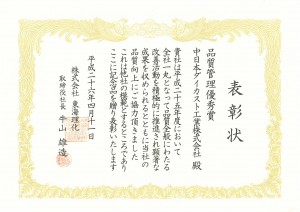 表彰状
品質管理優秀賞
中日本ダイカスト工業株式会社 殿
貴社は平成二十五年度において
全社一丸となって品質全般にわたる
改善活動を積極的に推進され顕著な
成果を収められるとともに当社の
品質向上にご協力頂きました
これは他社の模範とするところであり
ここに記念品を贈り表彰いたします
平成二十六年四月十一日
株式会社 東海理化
取締役社長 牛山 雄造